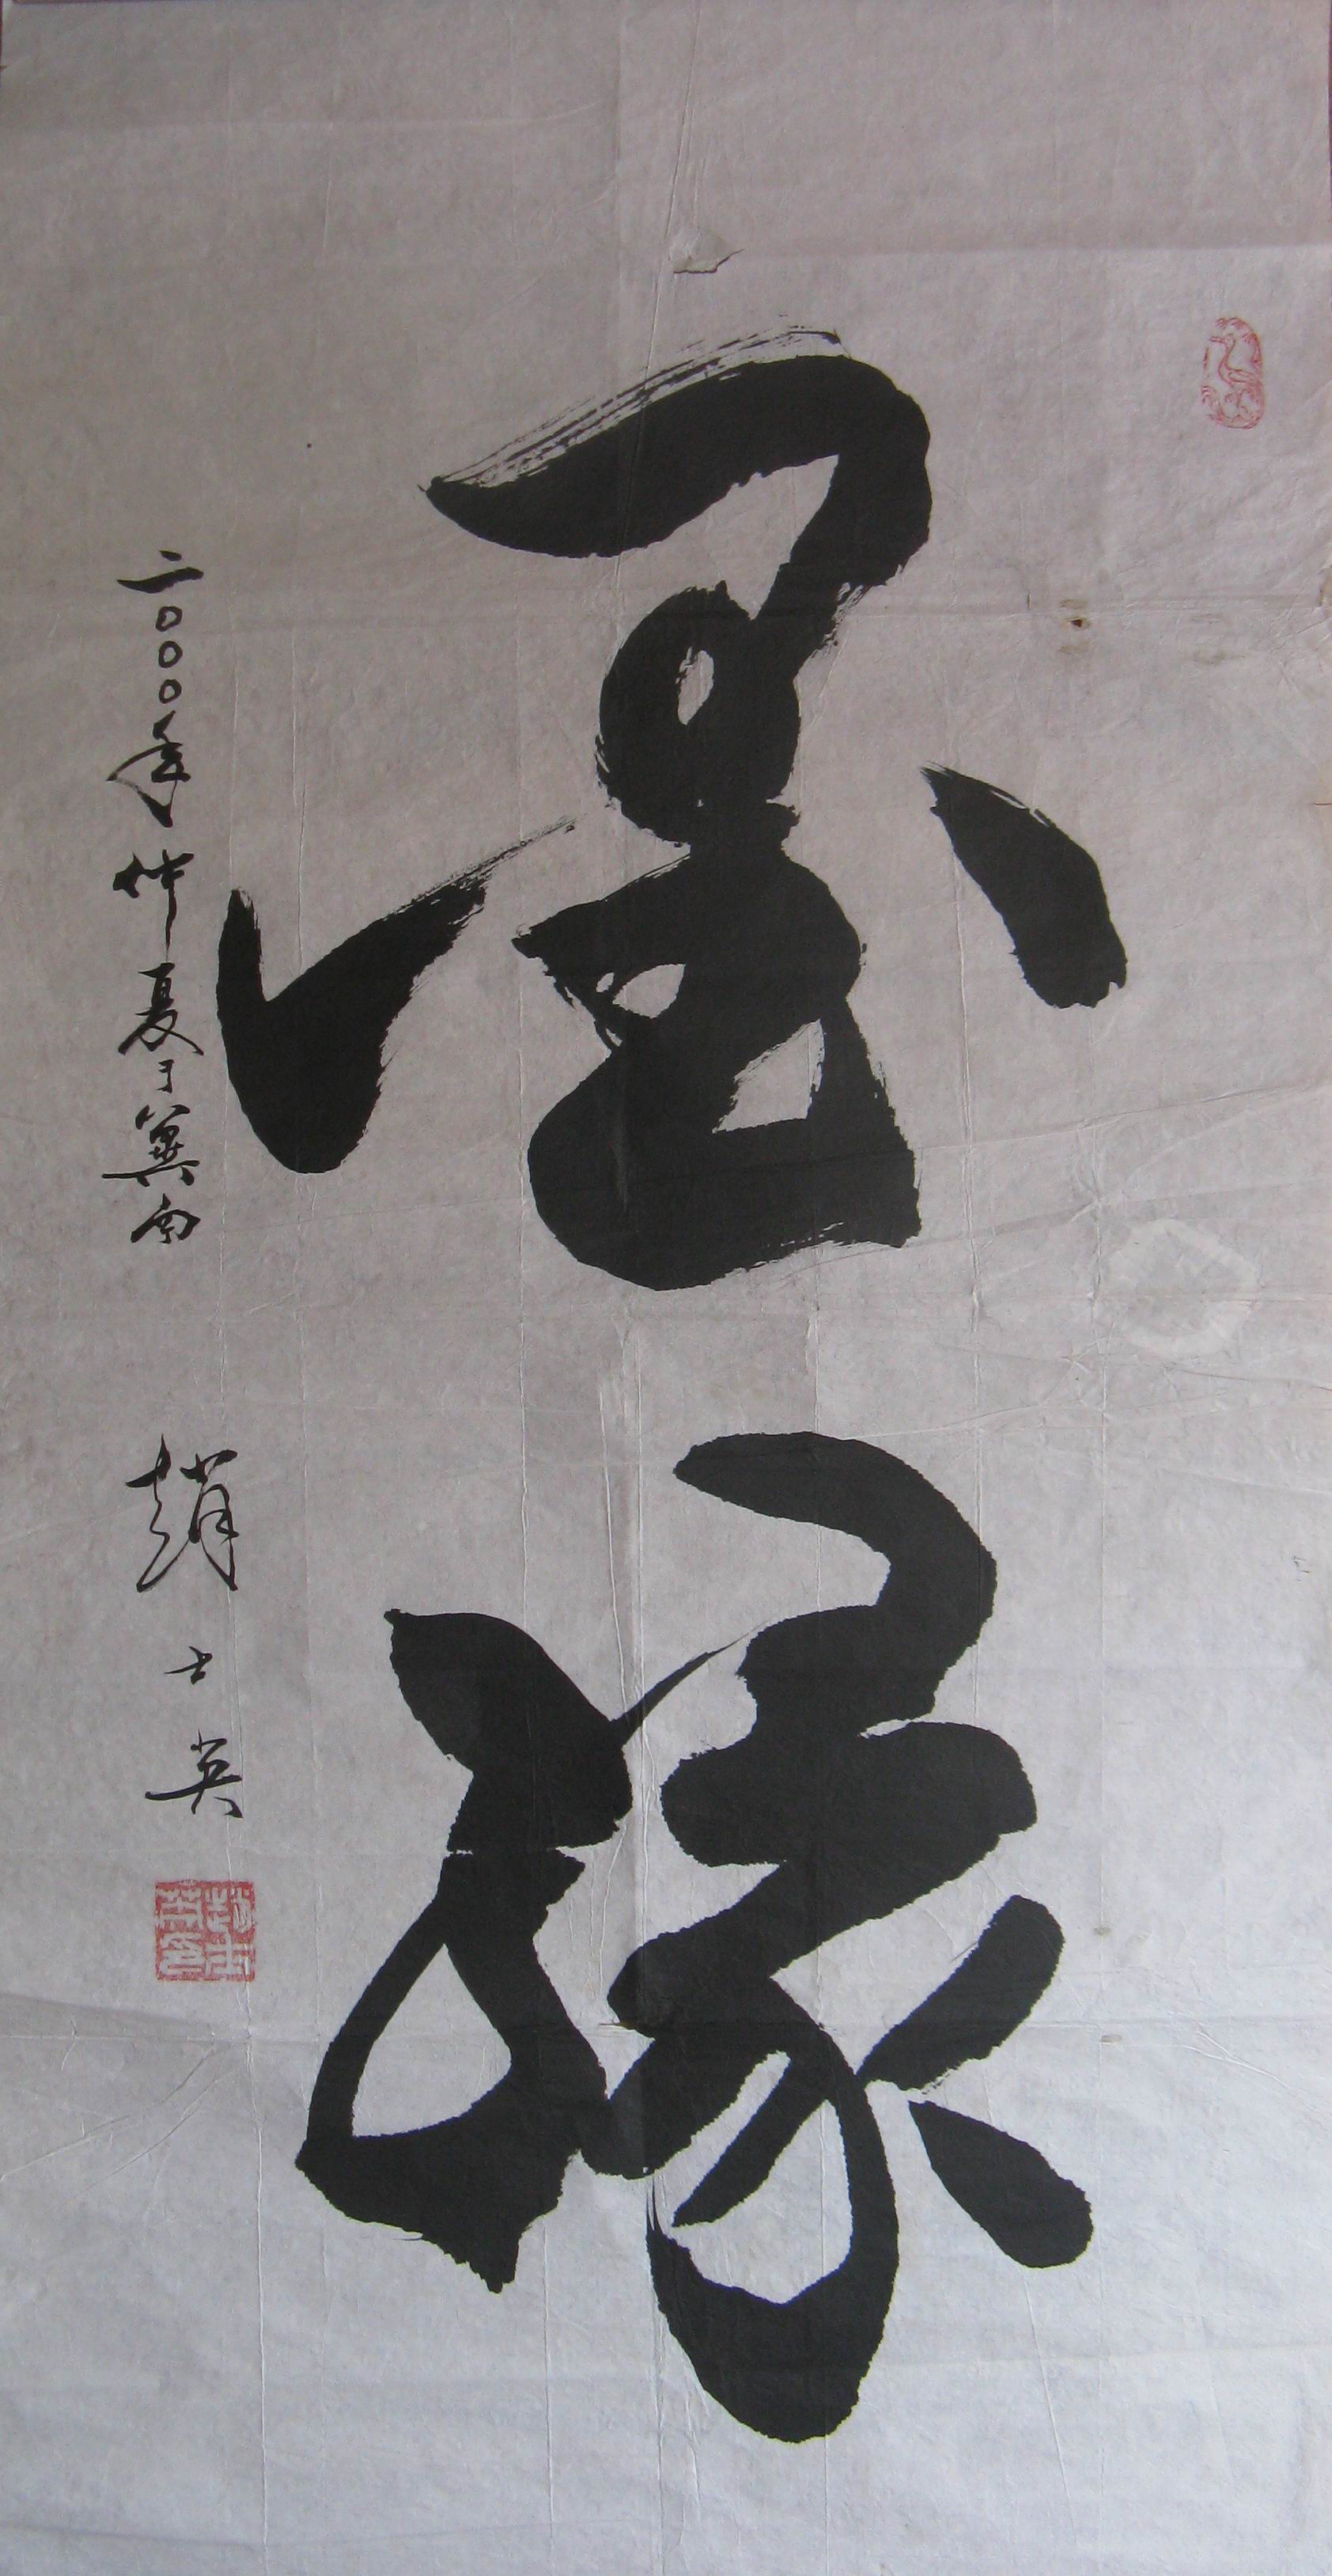 墨缘
二〇〇〇年仲夏于冀南
趙士英